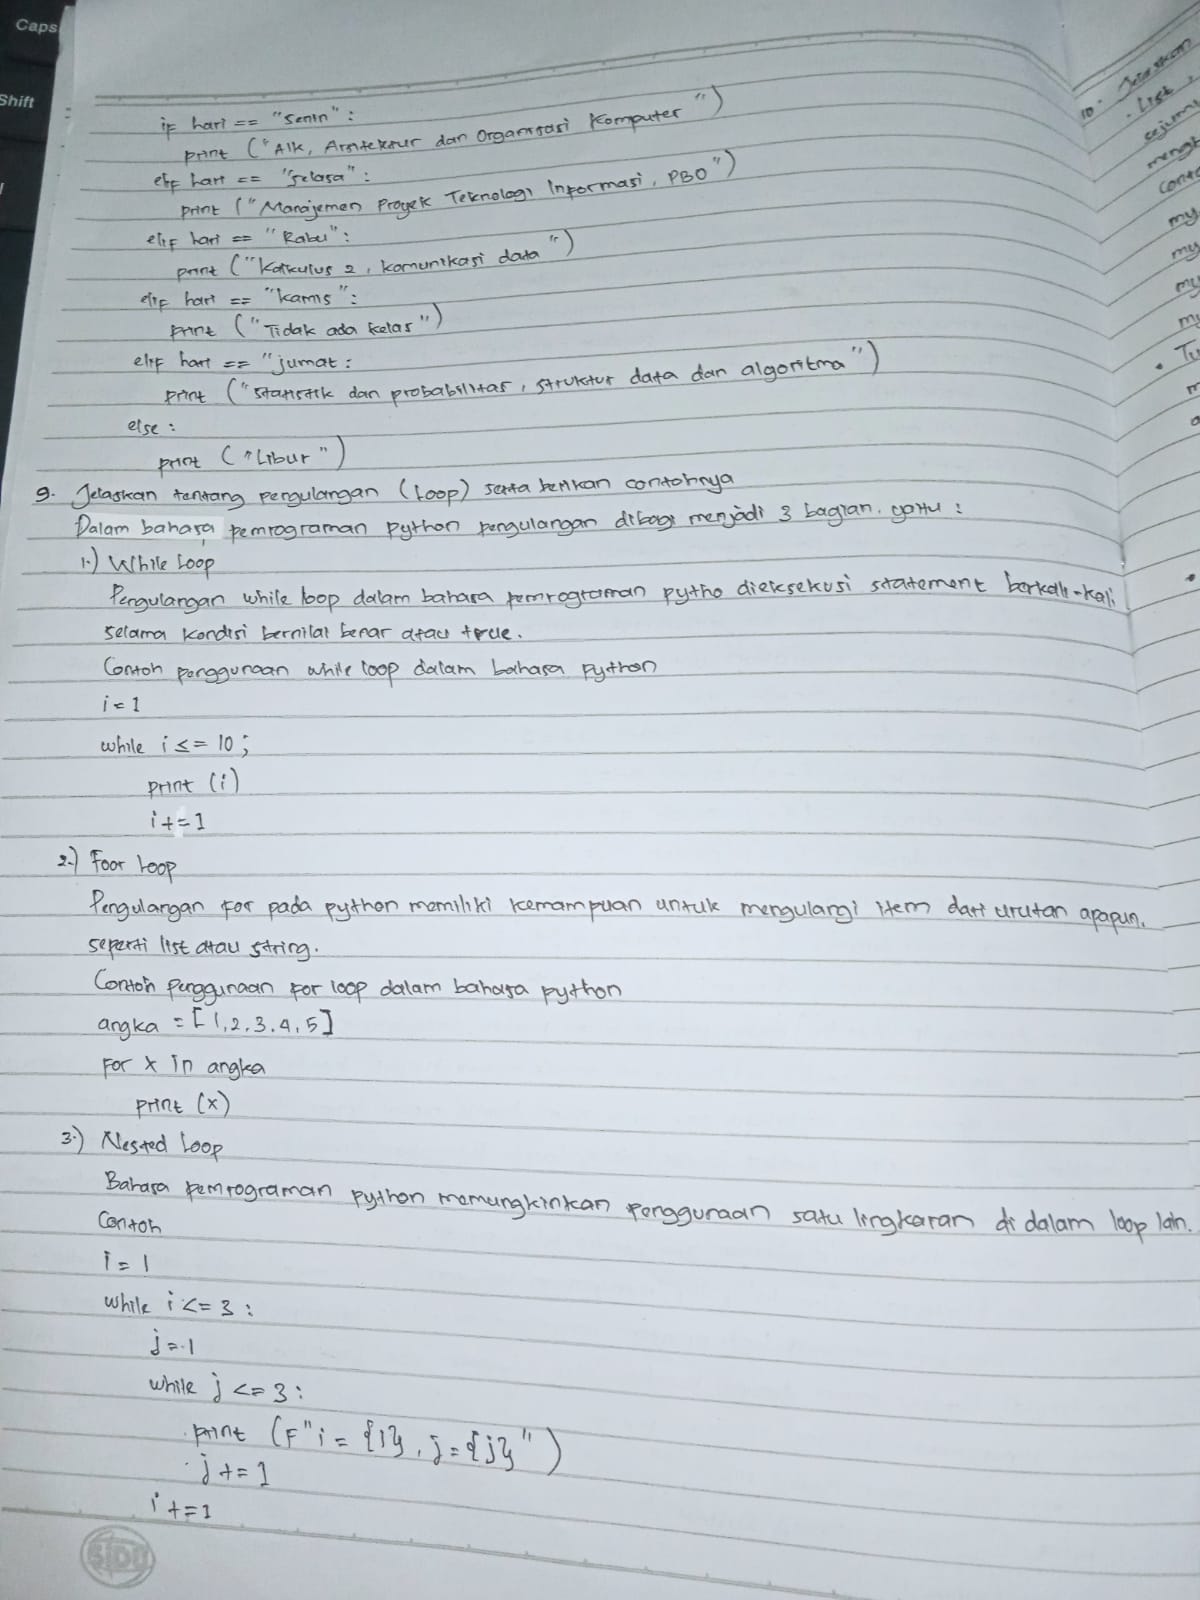 Caps
Shift
if hari == "Senin":
print ("Alk, Arsitektur dan Organisasi Komputer")
elif hari == "Selasa":
print ("Manajemen Proyek Teknologi Informasi, PBO")
elif hari == "Rabu":
print ("Kalkulus 2, komunikasi data")
elif hari == "kamis":
print ("Tidak ada kelas")
elif hari == "jumat:
print ("Statistik dan probabilitas, struktur data dan algoritma")
else:
print ("Libur")
9. Jelaskan tentang pengulangan (loop) serta berikan contohnya
Dalam bahasa pemrograman python pengulangan dibagi menjadi 3 bagian. yaitu:
1.) While Loop
Pengulangan while loop dalam bahasa pemrograman pytho dieksekusi statement berkali-kali
selama kondisi bernilai benar atau true.
Contoh penggunaan while loop dalam bahasa python
i = 1
while i <= 10;
print (i)
i += 1
2.) Foor Loop
Pengulangan for pada python memiliki kemampuan untuk mengulangi item dari urutan apapun.
seperti list atau string.
Contoh penggunaan for loop dalam bahasa python
angka = [1,2,3,4,5]
for x in angka
print (x)
3.) Nested Loop
Bahasa pemrograman python memungkinkan penggunaan satu lingkaran di dalam loop lain.
Contoh
i = 1
while i <= 3:
j = 1
while j <= 3:
print (F"i = {i}, j = {j}")
j += 1
i += 1
SIDU
10. Jelaskan
. List
my
my
my